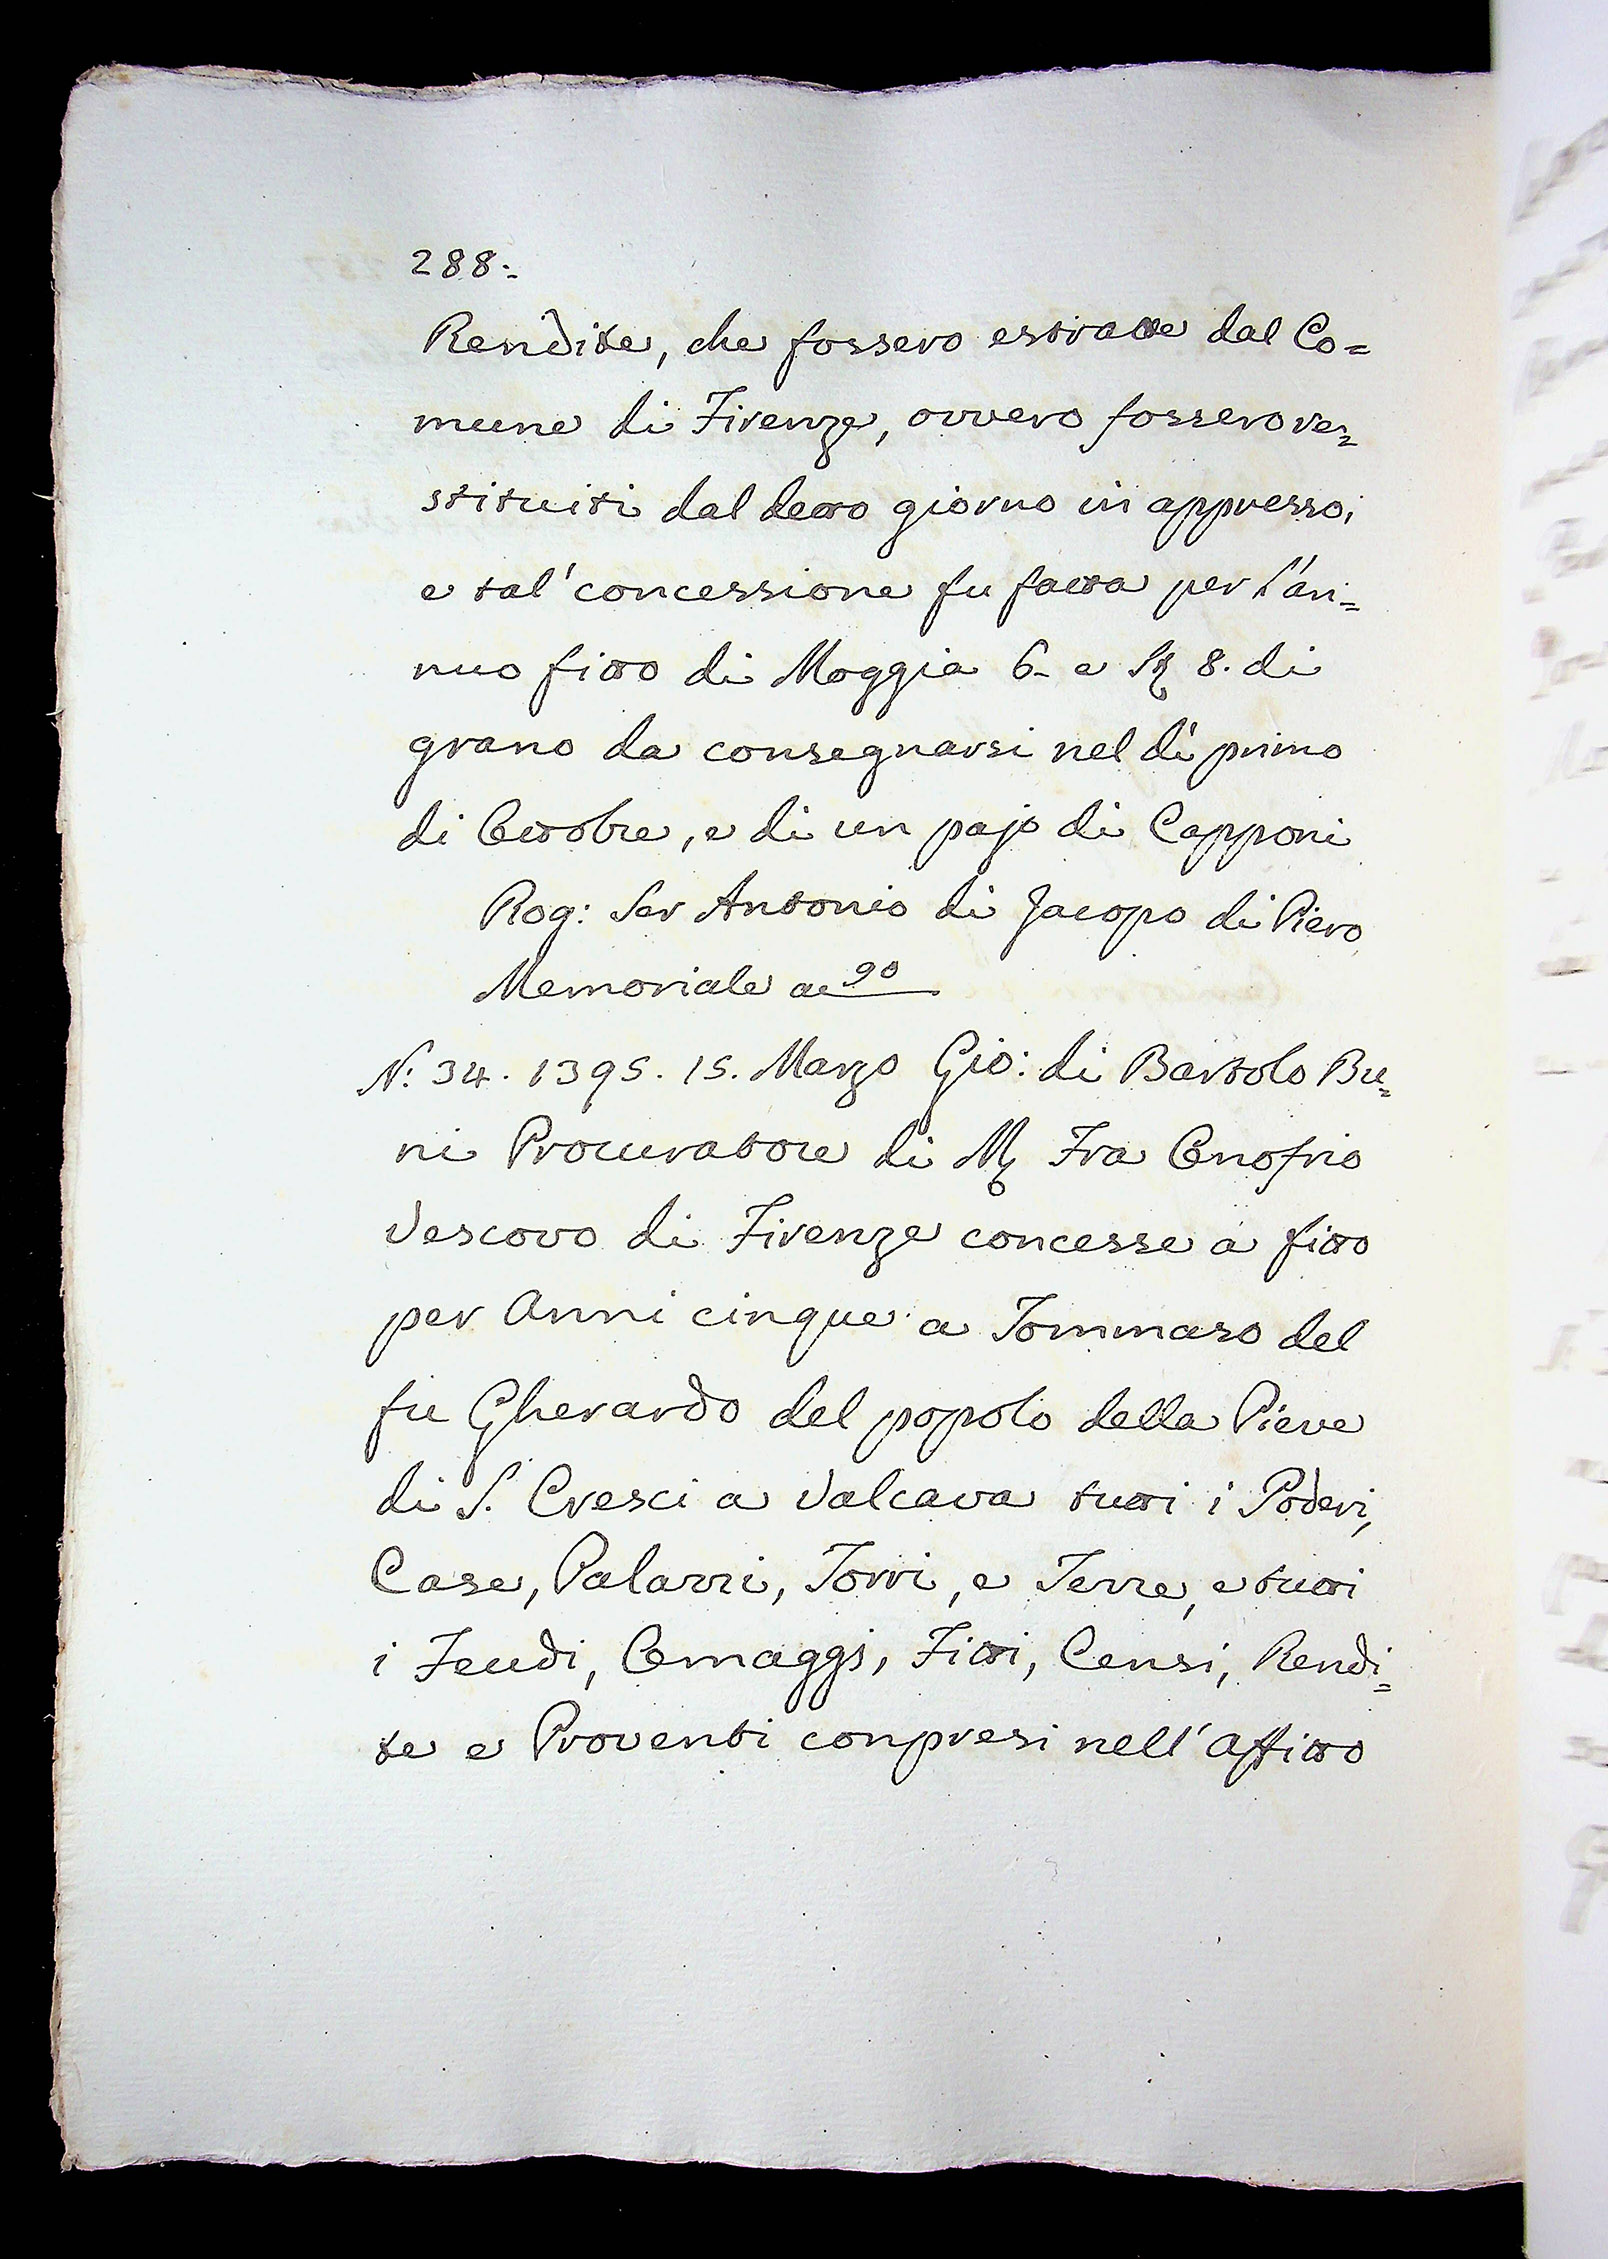 288.
Rendite, che fossero estratte dal Co=
mune di Firenze, ovvero fossero re=
stituiti dal detto giorno in appresso,
e tal' concessione fu fatta per l'an=
nuo fitto di Moggia 6. e 8. di
grano da consegnarsi nel dì primo
di Ottobre, e di un pajo di Capponi
Rog: Ser Antonio di Jacopo di Piero
Memoriale a 90
N: 34. 1395. 15. Marzo Gio: di Bartolo Bu=
ni Procuratore di M Fra Onofrio
Vescovo di Firenze concesse a fitto
per Anni cinque a Tommaso del
fu Gherardo del popolo della Pieve
di S. Cresci a Valcava tutti i Poderi,
Case, Palazzi, Torri, e Terre, e tutti
i Feudi, Omaggj, Fitti, Censi, Rendi=
te e Proventi conpresi nell' Affitto